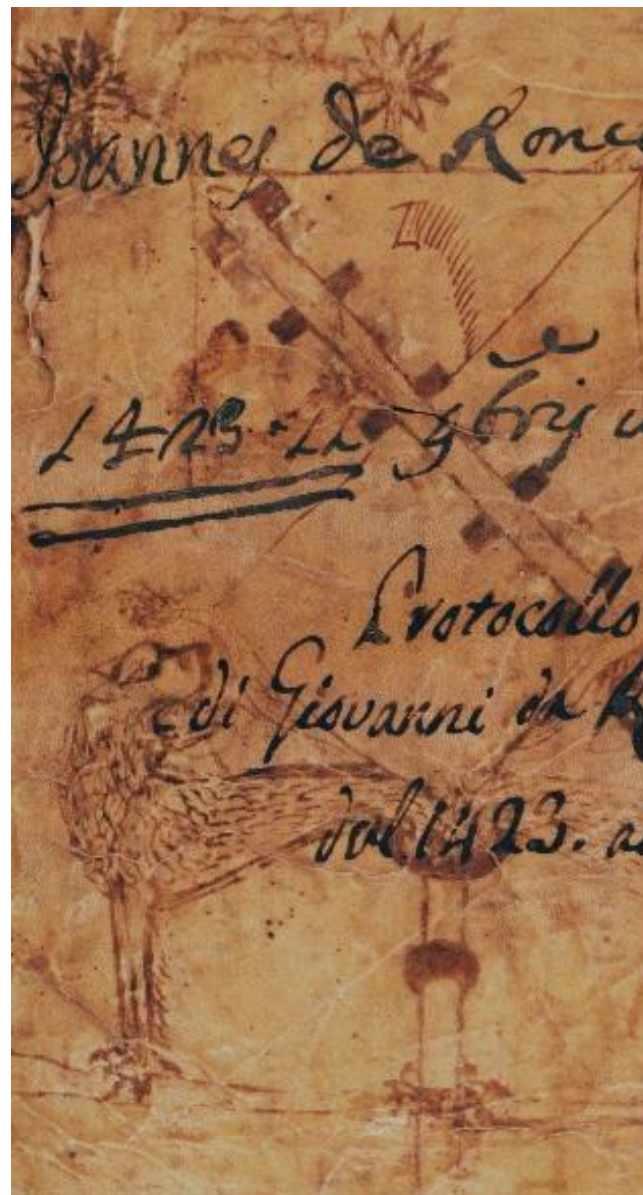 Joannes de Ronc
1423 · 11 9brij
Protocollo
di Giovanni da R
dal 1423. a